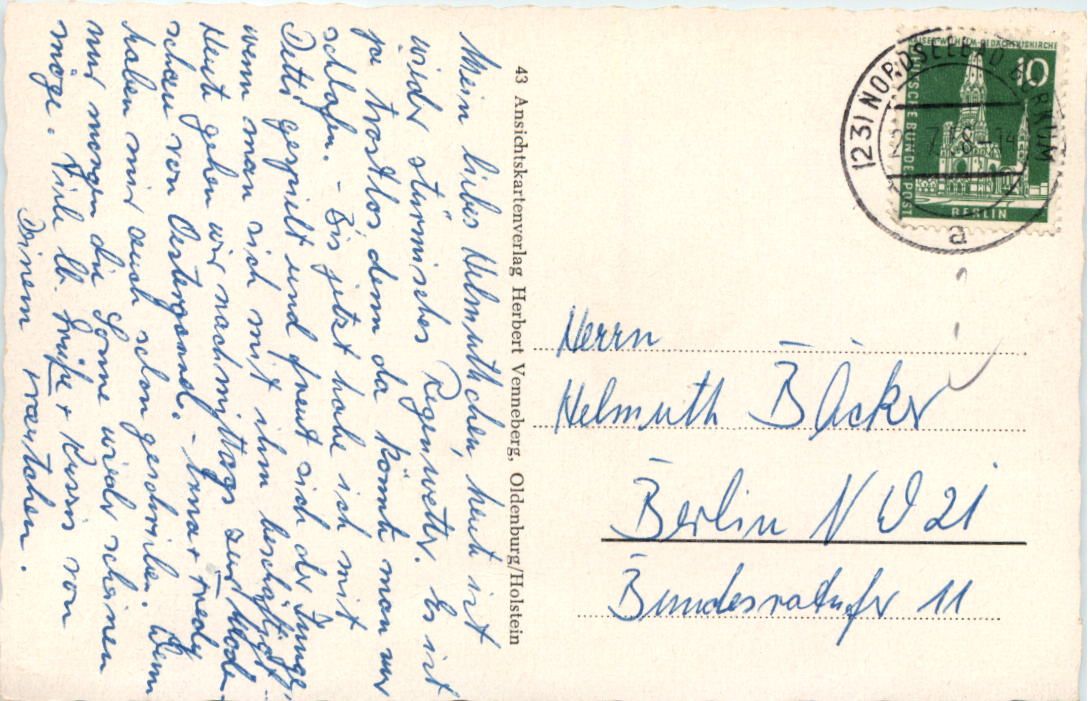 Mein liebes Helmuthchen, heut ist
wieder stürmisches Regenwetter. Es ist
ja trostlos denn da könnte man nur
schlafen. - Bis jetzt habe ich mit
Deti gespielt und freut sich der Junge,
wenn man sich mit ihm beschäftigt.
Heute gehen wir nachmittags zur Mode-
schau von Oestergaard. - Anna + Fredy
haben mir auch schon geschrieben. Wenn
nur morgen die Sonne wieder scheinen
möge. Viele lb. Grüße + Kussis von
Deinem
43 Ansichtskartenverlag Herbert Venneberg, Oldenburg/Holstein
KAISER-WILHELM-GEDÄCHTNISKIRCHE
10
DEUTSCHE BUNDESPOST
BERLIN
(23) NORDSEEBAD BORKUM
a
Herrn
Helmuth Bäcker
Berlin NW 21
Bundesratufer 11